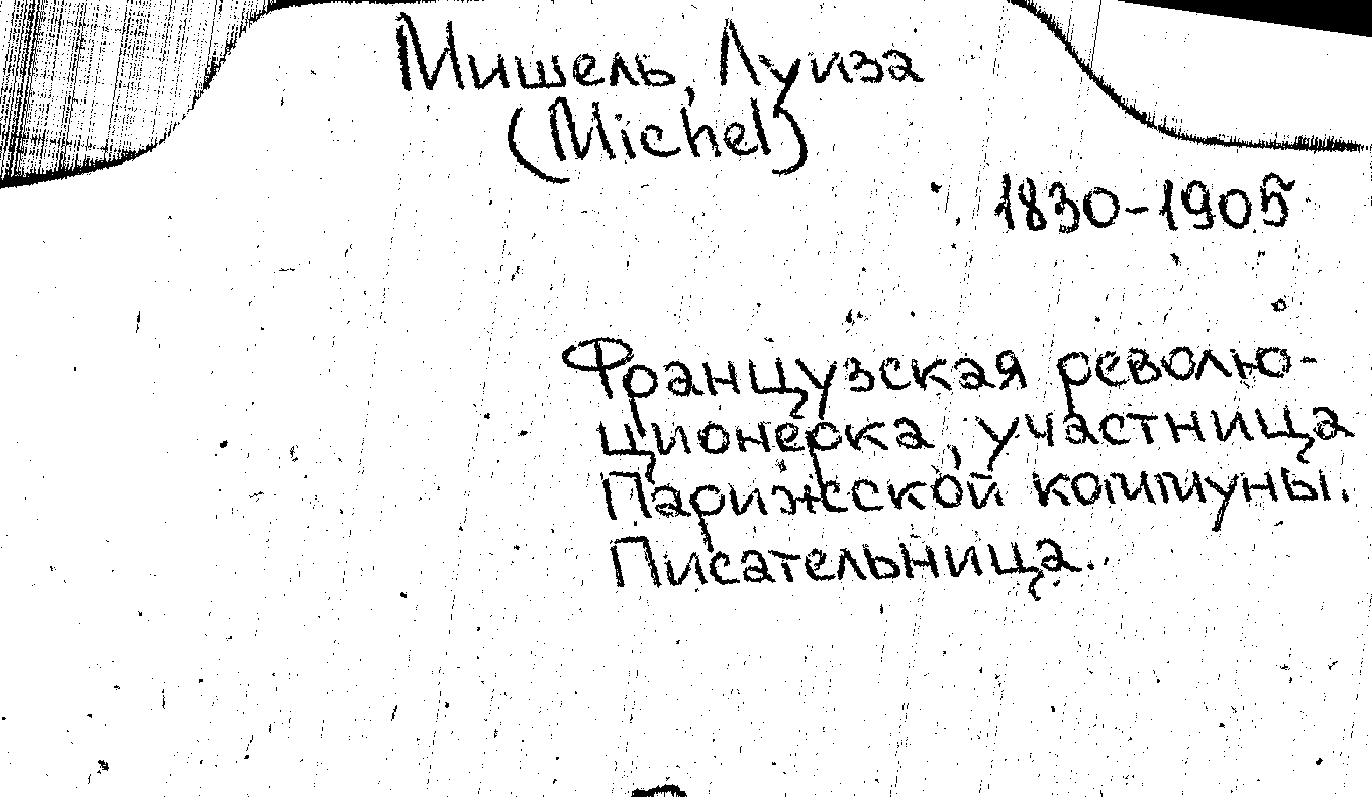 Мишель, Луиза
(Michel)
1830-1905
Французская револю-
ционерка, участница
Парижской коммуны.
Писательница.